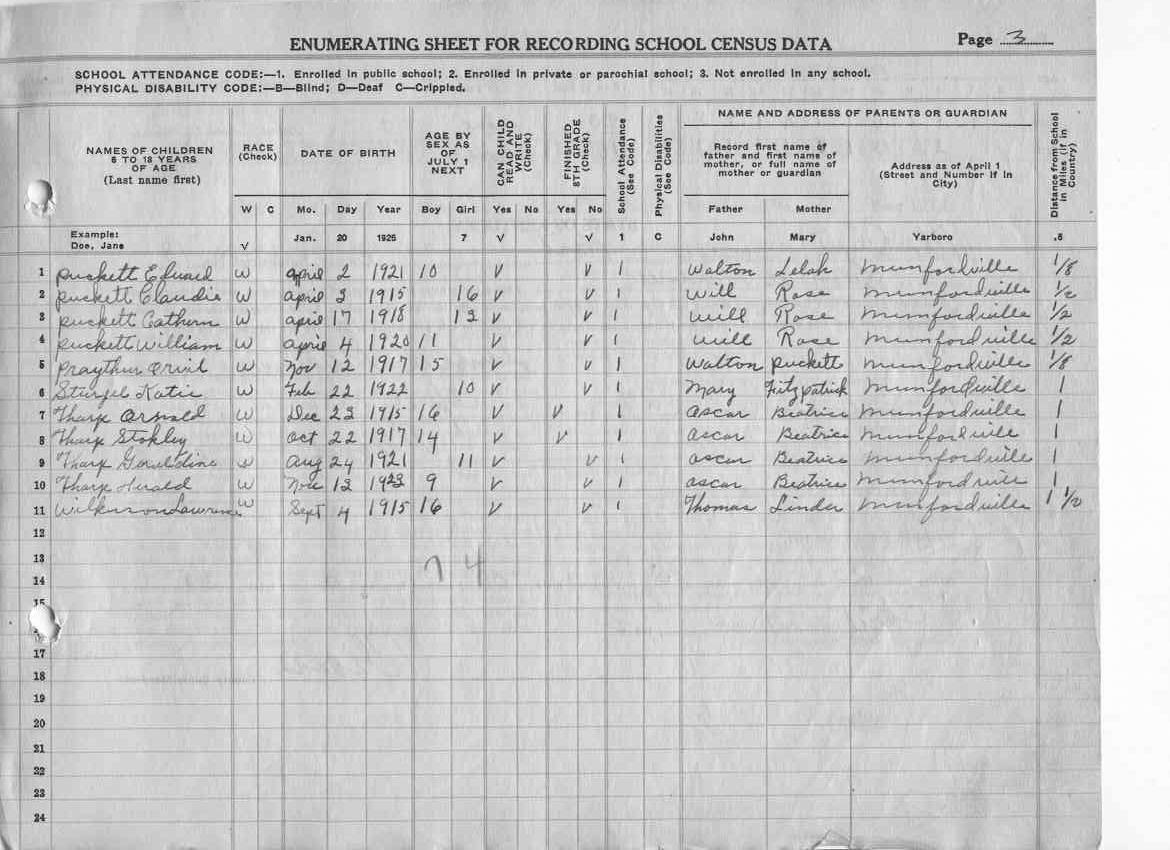 Page 3
ENUMERATING SHEET FOR RECORDING SCHOOL CENSUS DATA
SCHOOL ATTENDANCE CODE:—1. Enrolled in public school; 2. Enrolled in private or parochial school; 3. Not enrolled in any school.
PHYSICAL DISABILITY CODE:—B—Blind; D—Deaf C—Crippled.
NAMES OF CHILDREN 6 TO 18 YEARS OF AGE (Last name first)
RACE (Check)
DATE OF BIRTH
AGE BY SEX AS OF JULY 1 NEXT
CAN CHILD READ AND WRITE (Check)
FINISHED 8TH GRADE (Check)
School Attendance (See Code)
Physical Disabilities (See Code)
NAME AND ADDRESS OF PARENTS OR GUARDIAN
Record first name of father and first name of mother, or full name of mother or guardian
Address as of April 1 (Street and Number if in City)
Distance from School in Miles (if in Country)
W C Mo. Day Year Boy Girl Yes No Yes No Father Mother
Example: Doe, Jane √ Jan. 20 1925 7 √ √ 1 C John Mary Yarboro .5
1 Puckett Edward W April 2 1921 10 V V 1 Walton Lelah Munfordville 1/8
2 Puckett Claudie W April 3 1915 16 V V 1 Will Rose Munfordville 1/2
3 Puckett Cathern W April 17 1918 13 V V 1 Will Rose Munfordville 1/2
4 Puckett William W April 4 1920 11 V V 1 Will Rose Munfordville 1/2
5 Praythur Orvil W Nov 12 1917 15 V V 1 Walton Puckett Munfordville 1/8
6 Katie W Feb 22 1922 10 V V 1 Mary Fitzpatrick Munfordville 1
7 Tharp Arnold W Dec 23 1915 16 V V 1 Ascar Beatrice Munfordville 1
8 Tharp Stokley W Oct 22 1917 14 V V 1 Ascar Beatrice Munfordville 1
9 Tharp Geraldine W Aug 24 1921 11 V V 1 Ascar Beatrice Munfordville 1
10 Tharp Herald W Nov 13 1923 9 V V 1 Ascar Beatrice Munfordville 1
11 Wilkerson Lawrence W Sept 4 1915 16 V V 1 Thomas Linder Munfordville 1 1/2
12
13
74
14
15
17
18
19
20
21
22
23
24